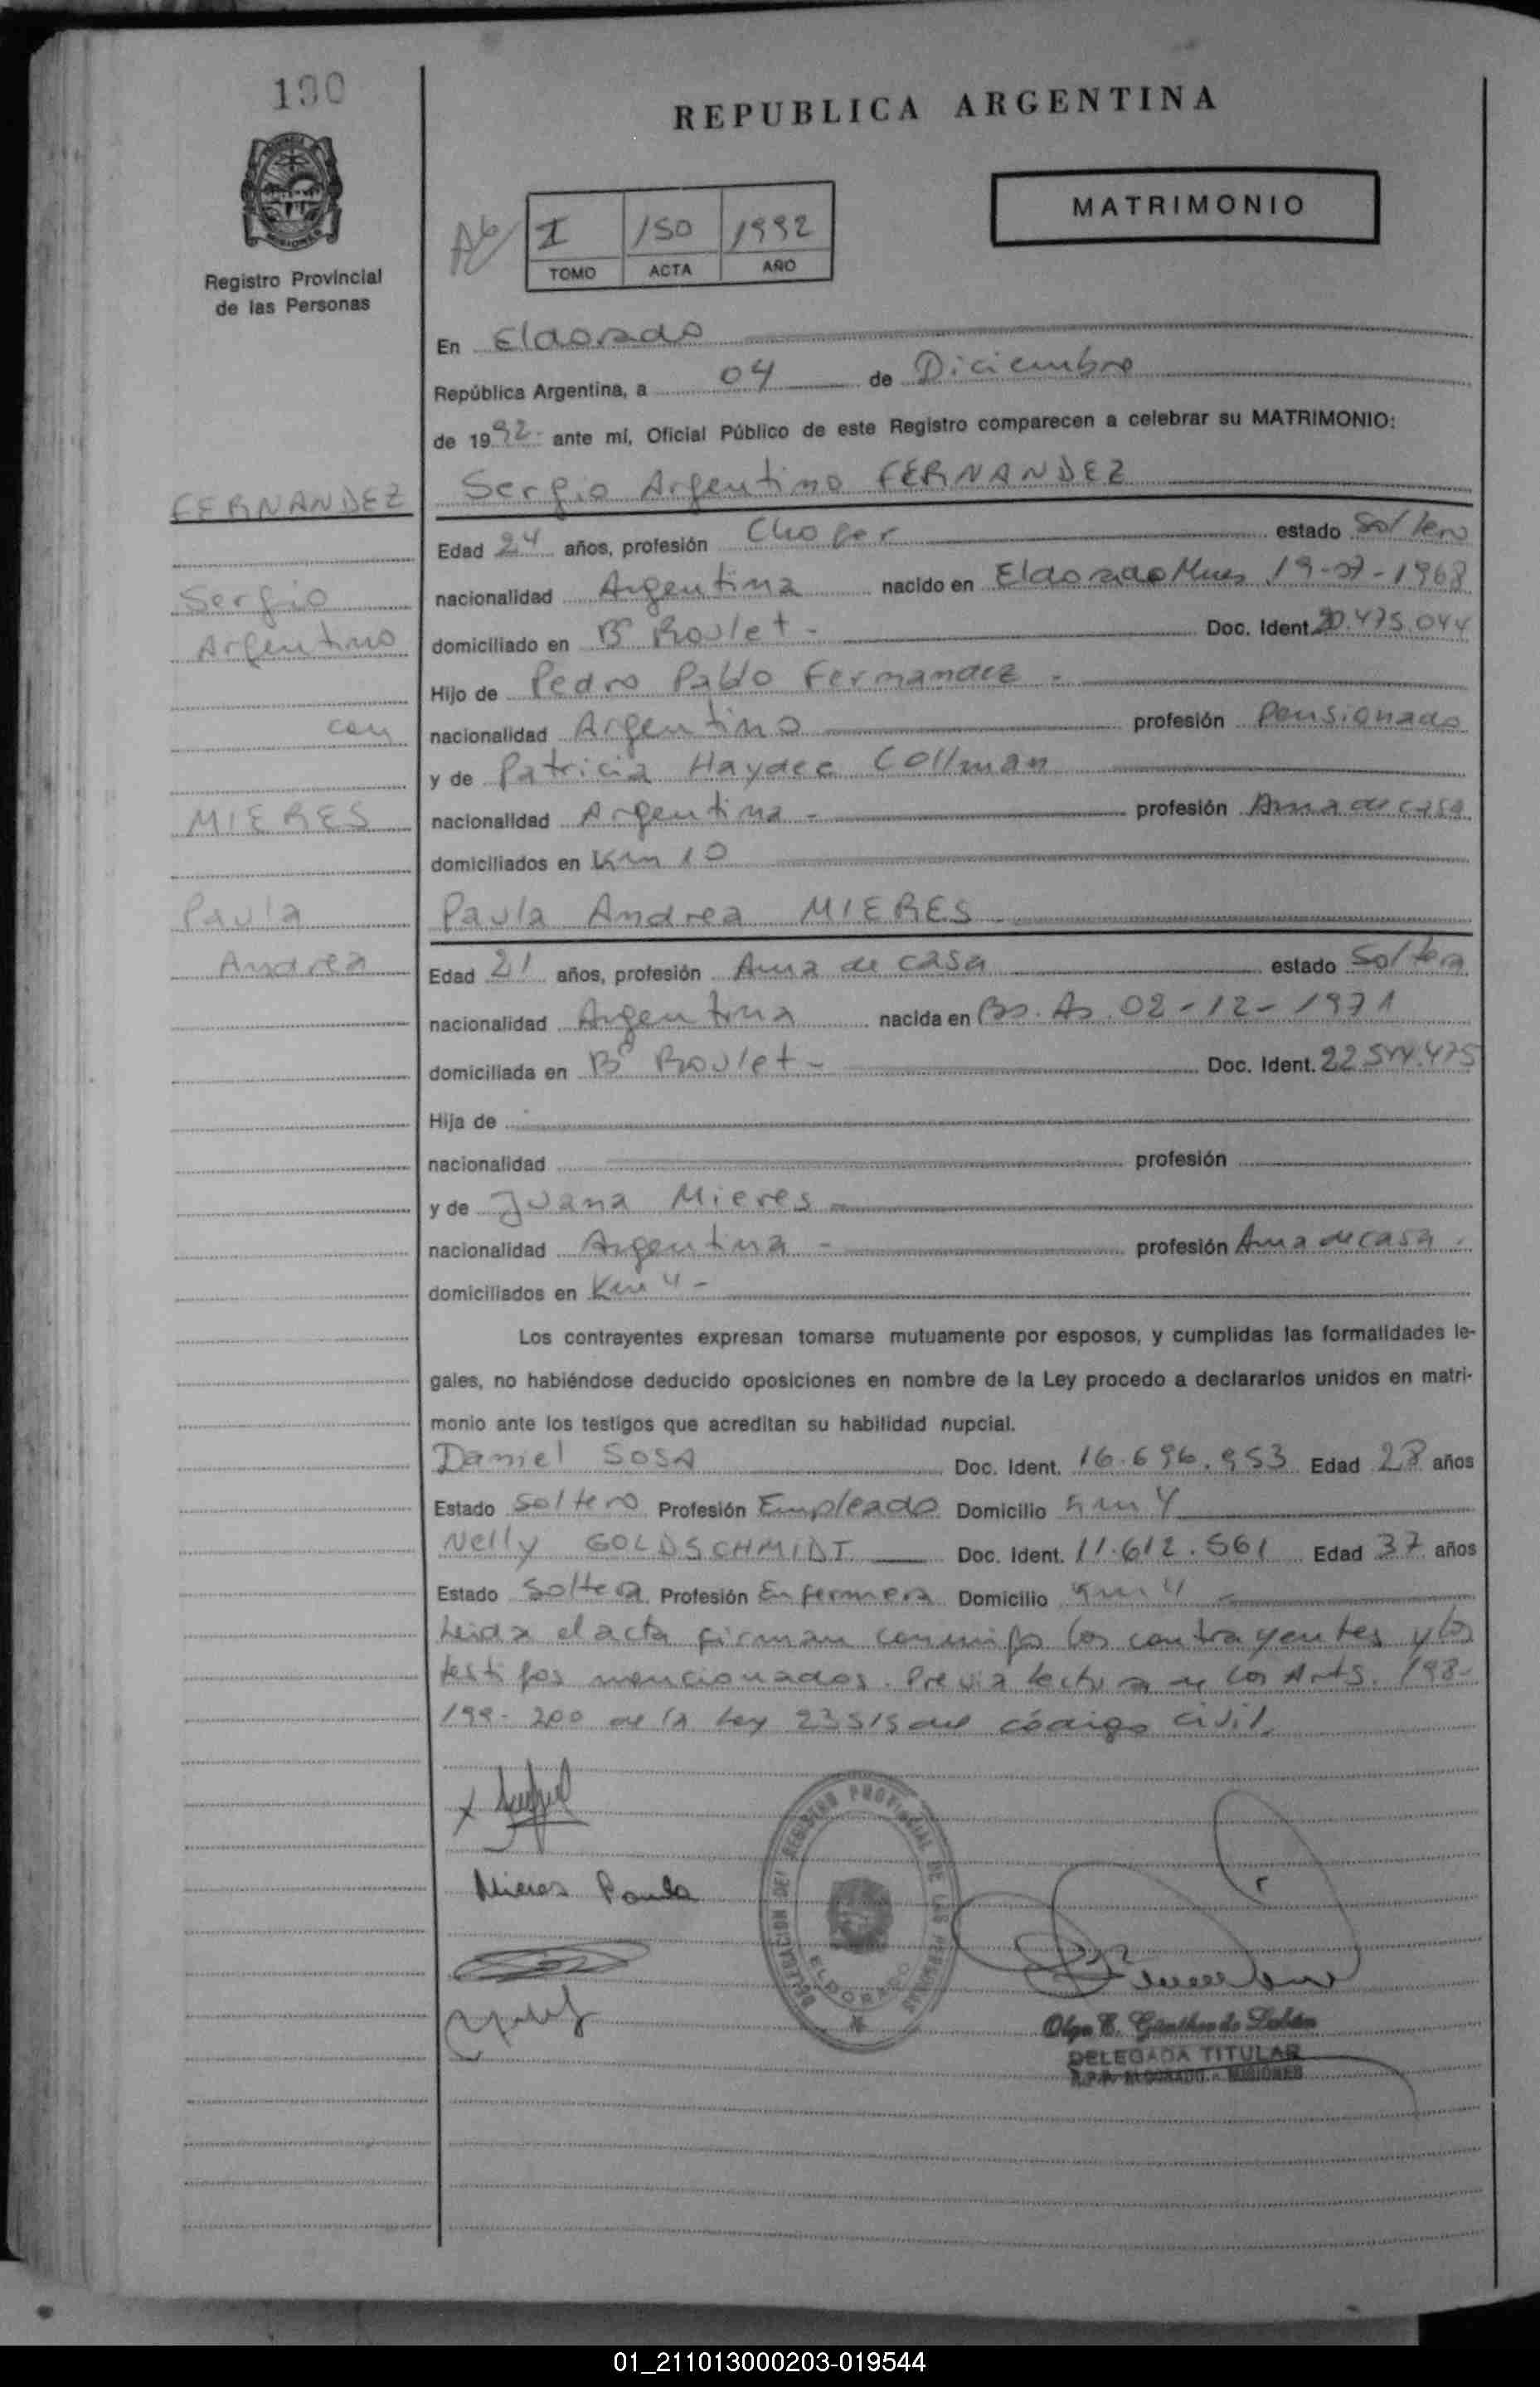 190
REPUBLICA ARGENTINA
MATRIMONIO
I 150 1992
TOMO ACTA AÑO
Registro Provincial
de las Personas
En Eldorado
República Argentina, a 04 de Diciembre
de 1992- ante mí, Oficial Público de este Registro comparecen a celebrar su MATRIMONIO:
FERNANDEZ
Sergio
Argentino
con
MIERES
Paula
Andrea
Sergio Argentino FERNANDEZ
Edad 24 años, profesión Chofer estado Soltero
nacionalidad Argentina nacido en Eldorado Mnes 19-07-1968
domiciliado en B° Roulet - Doc. Ident. 20.475.044
Hijo de Pedro Pablo Fernandez -
nacionalidad Argentino profesión Pensionado
y de Patricia Haydee Collman
nacionalidad Argentina - profesión Ama de casa
domiciliados en Km 10
Paula Andrea MIERES
Edad 21 años, profesión Ama de casa estado Soltera
nacionalidad Argentina nacida en Bs. As. 02-12-1971
domiciliada en B° Roulet - Doc. Ident. 22.544.475
Hija de
nacionalidad profesión
y de Juana Mieres
nacionalidad Argentina - profesión Ama de casa -
domiciliados en Km 4 -
Los contrayentes expresan tomarse mutuamente por esposos, y cumplidas las formalidades le-
gales, no habiéndose deducido oposiciones en nombre de la Ley procedo a declararlos unidos en matri-
monio ante los testigos que acreditan su habilidad nupcial.
Daniel SOSA Doc. Ident. 16.696.953 Edad 28 años
Estado Soltero Profesión Empleado Domicilio Km 4
Nelly GOLDSCHMIDT Doc. Ident. 11.612.561 Edad 37 años
Estado Soltera Profesión Enfermera Domicilio Km 4
Leida el acta firman conmigo los contrayentes y los
testigos mencionados. Previa lectura de los Arts. 198-
199- 200 de la Ley 23515 del código civil.
Mieres Paula
DELEGACION DEL REGISTRO PROVINCIAL DE LAS PERSONAS
ELDORADO
Olga E. Günther de
DELEGADA TITULAR
R.P.P. ELDORADO - MISIONES
01_211013000203-019544